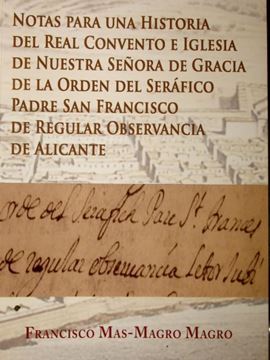 NOTAS PARA UNA HISTORIA
DEL REAL CONVENTO E IGLESIA
DE NUESTRA SEÑORA DE GRACIA
DE LA ORDEN DEL SERÁFICO
PADRE SAN FRANCISCO
DE REGULAR OBSERVANCIA
DE ALICANTE
orde del Serafico Pare Sᵗ. Frances
de regular observancia
FRANCISCO MAS-MAGRO MAGRO